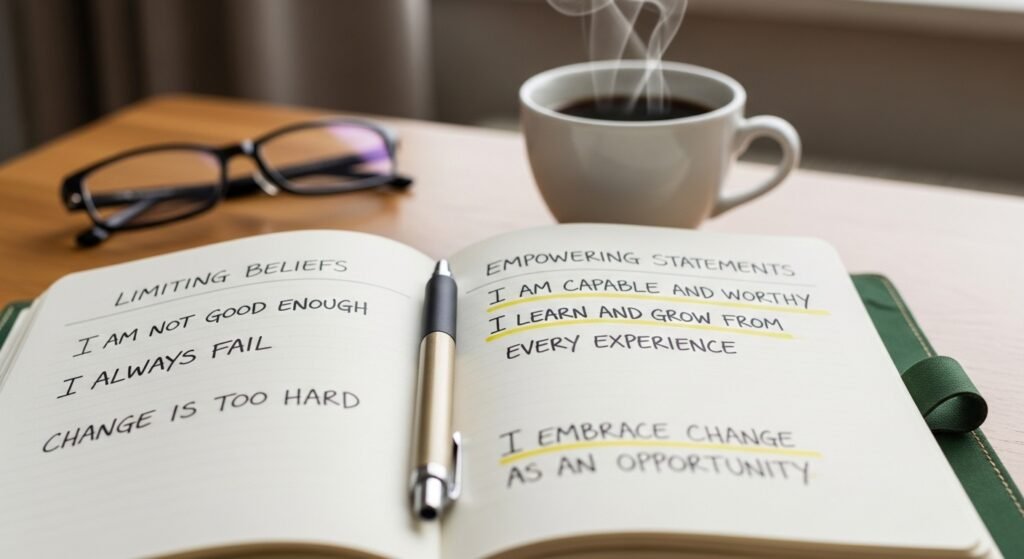 LIMITING BELIEFS
I AM NOT GOOD ENOUGH
I ALWAYS FAIL
CHANGE IS TOO HARD
EMPOWERING STATEMENTS
I AM CAPABLE AND WORTHY
I LEARN AND GROW FROM
EVERY EXPERIENCE
I EMBRACE CHANGE
AS AN OPPORTUNITY